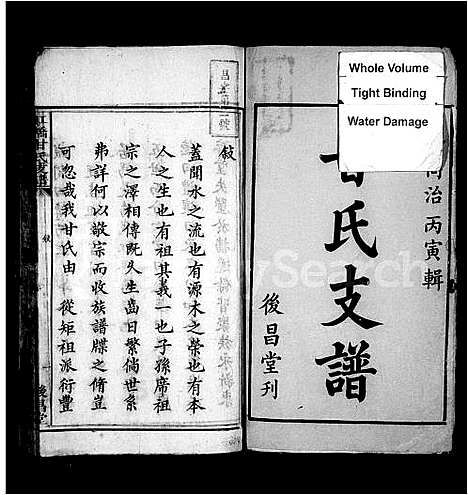 Whole Volume
Tight Binding
Water Damage
治丙寅輯
氏支譜
後昌堂刊
敘
蓋聞水之流也有源木之榮也有本
人之生也有祖其義一也子孫席祖
宗之澤相傳既久生齒日繁倘世系
弗詳何以敬宗而收族譜牒之脩豈
可忽哉我甘氏由 從矩祖派衍豐
敘
後昌堂